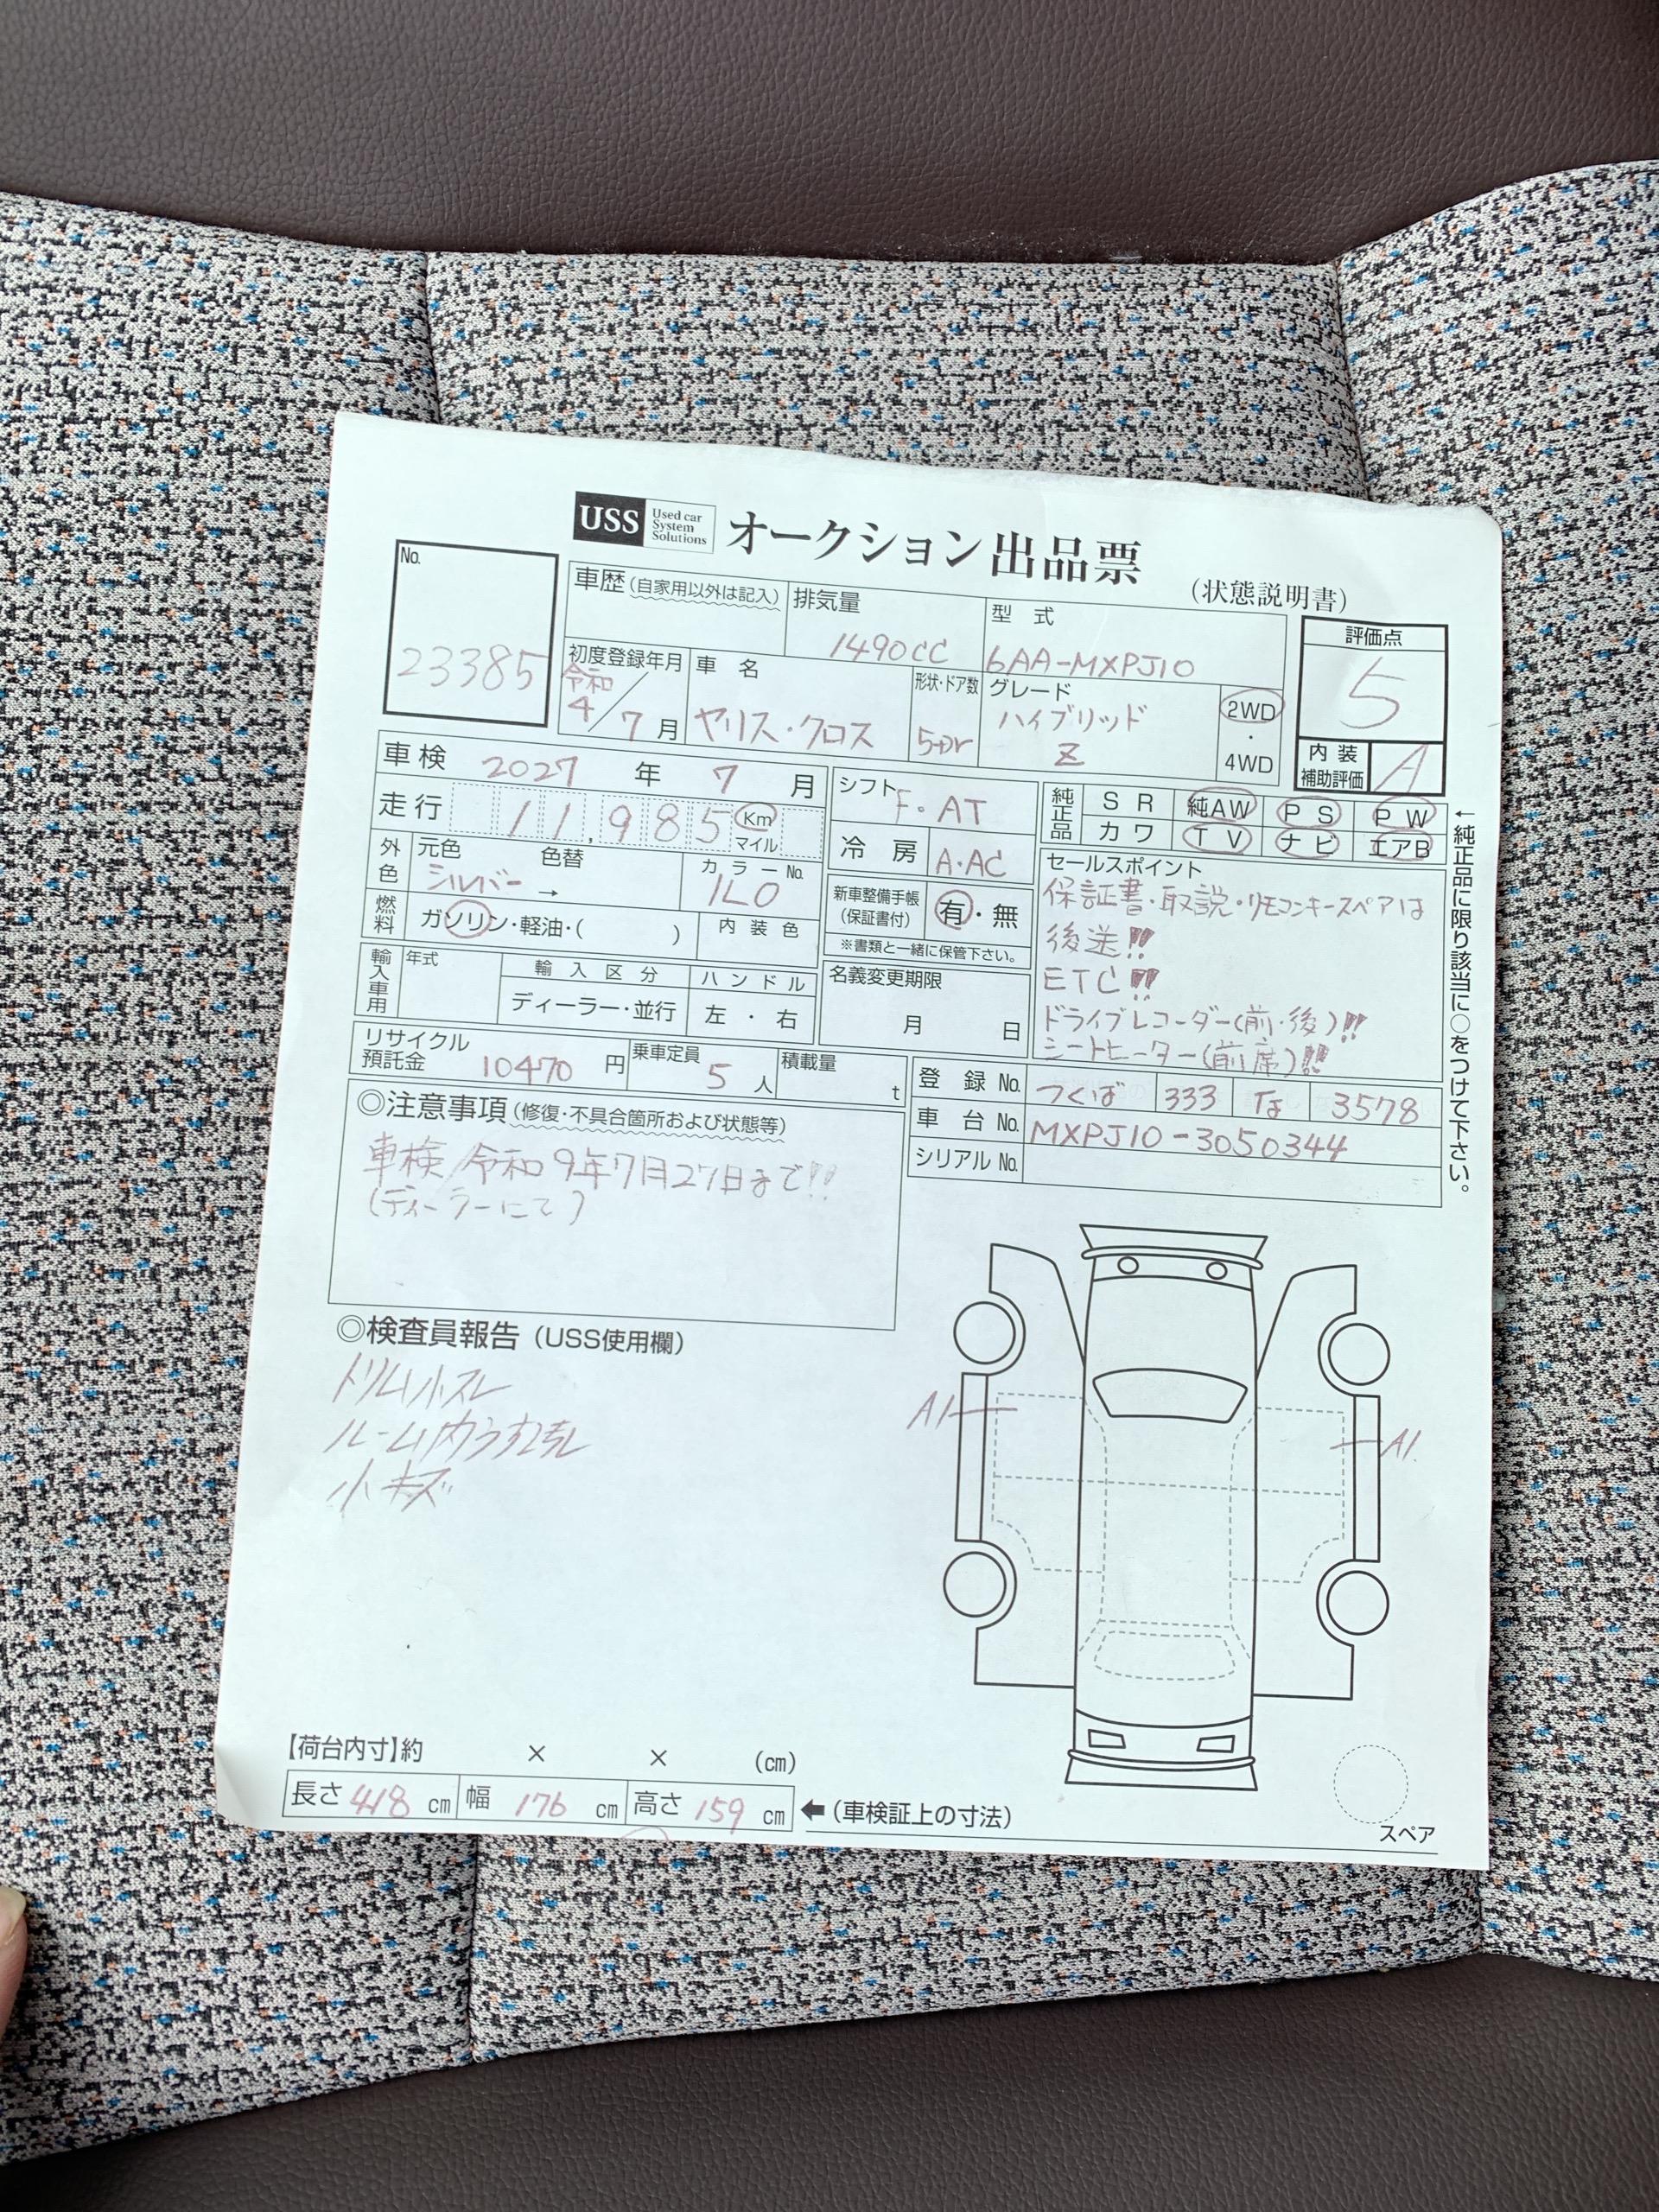 USS Used car System Solutions オークション出品票 (状態説明書)
No. 23385
車歴(自家用以外は記入) 排気量 1490CC 型式 6AA-MXPJ10
初度登録年月 令和 4/7月 車名 ヤリス・クロス 形状・ドア数 5Dr グレード ハイブリッド Z 2WD・4WD
評価点 5
内装補助評価 A
車検 2027年 7月
走行 11,985 Km マイル
外色 元色 シルバー → 色替 カラーNo. 1L0
燃料 ガソリン・軽油・( ) 内装色
輸入車用 年式 輸入区分 ディーラー・並行 ハンドル 左・右
シフト F・AT
冷房 A・AC
新車整備手帳(保証書付) 有・無
※書類と一緒に保管下さい。
名義変更期限 月 日
純正品 SR 純AW PS PW
カワ TV ナビ エアB
←純正品に限り該当に○をつけて下さい。
セールスポイント
保証書・取説・リモコンキースペアは
後送!!
ETC!!
ドライブレコーダー(前・後)!!
シートヒーター(前席)!!
リサイクル預託金 10470円 乗車定員 5人 積載量 t
登録No. つくば 333 な 3578
車台No. MXPJ10-3050344
シリアルNo.
◎注意事項(修復・不具合箇所および状態等)
車検/令和9年7月27日まで!!
(ディーラーにて)
◎検査員報告(USS使用欄)
トリム小スレ
ルーム内うす汚レ
小キズ
A1
A1
【荷台内寸】約 × × (cm)
長さ 418 cm 幅 176 cm 高さ 159 cm ←(車検証上の寸法)
スペア